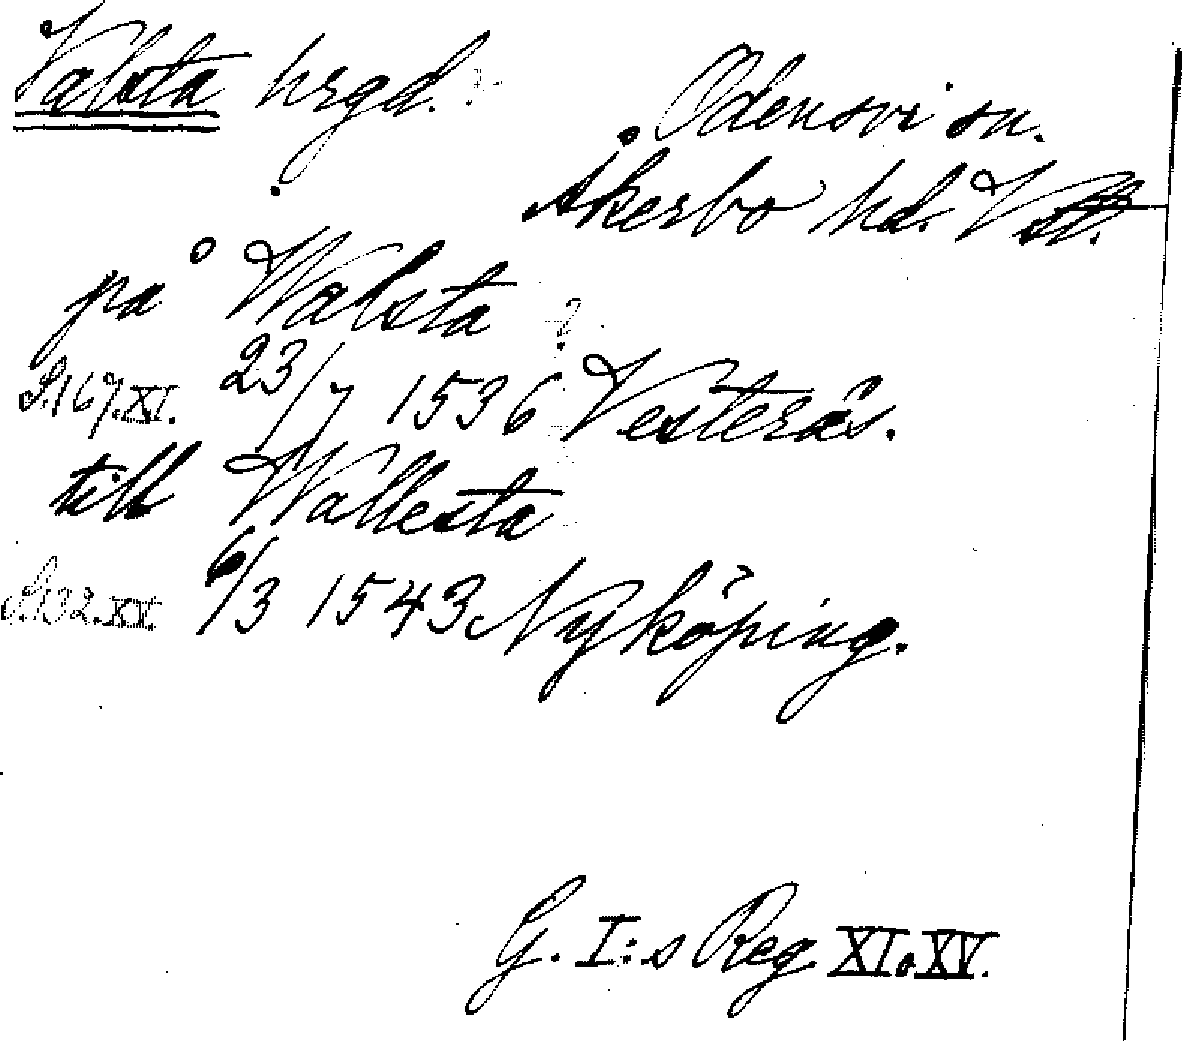 Valsta hrgd.
Odensvi sn.
Åkerbo hd. Vstl.
på Walsta ?
S.167.XI. 23/7 1536 Vesterås.
till Wallesta
S.132.XV. 6/3 1543 Nyköping.
G. I:s Reg XI o XV.